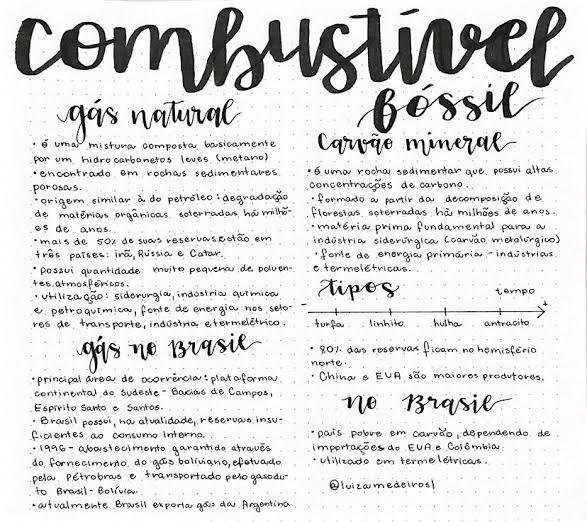 combustível
fóssil
gás natural
• é uma mistura composta basicamente
por um hidrocarbonetos leves (metano)
• encontrado em rochas sedimentares
porosas.
• origem similar à do petróleo: degradação
de matérias orgânicas soterradas há milhõ-
es de anos.
• mais de 50% de suas reservas estão em
três países: irã, Rússia e Catar.
• possui quantidade muito pequena de poluen-
tes atmosféricos.
• utilização: siderurgia, indústria química
e petroquímica, fonte de energia nos seto-
res de transporte, indústria e termelétrico.
gás no Brasil
• principal área de ocorrência: plataforma
continental do sudeste - Bacias de Campos,
Espírito Santo e Santos.
• Brasil possui, na atualidade, reservas insu-
ficientes ao consumo interno.
• 1996 - abastecimento garantido através
do fornecimento do gás boliviano, efetuado
pela Petrobras e transportado pelo gasodu-
to Brasil - Bolívia.
• atualmente Brasil exporta gás da Argentina
Carvão mineral
• é uma rocha sedimentar que possui altas
concentrações de carbono.
• formado a partir da decomposição de
florestas soterradas há milhões de anos.
• matéria prima fundamental para a
indústria siderúrgica (carvão metalúrgico)
• fonte de energia primária - indústrias
e termelétricas.
tipos
tempo
- +
turfa linhito hulha antracito
• 80% das reservas ficam no hemisfério
norte.
• China e EUA são maiores produtores.
no Brasil
• país pobre em carvão, dependendo de
importações do EUA e Colômbia.
• utilizado em termelétricas.
@luizamedeiros1